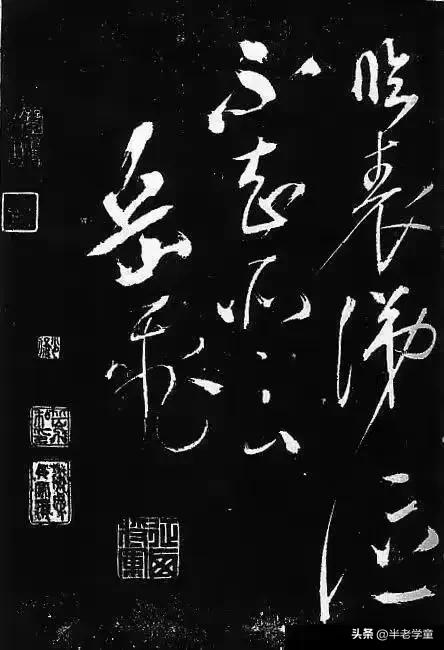 臨表涕泣
不知所云
岳飛
头条 @半老学童